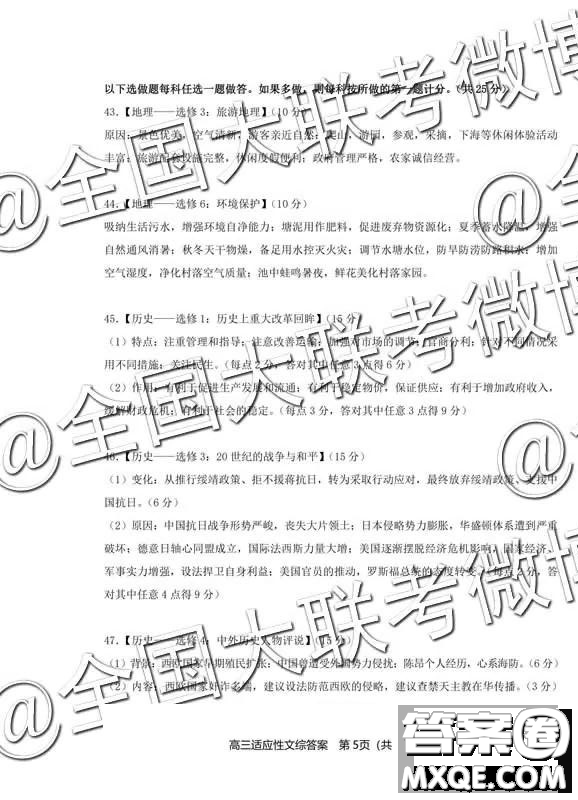 以下选做题每科任选一题做答。如果多做，则每科按所做的第一题计分。（共 25 分）
43.【地理——选修 3：旅游地理】（10 分）
原因：景色优美，空气清新，游客亲近自然；爬山，游园，参观，采摘，下海等休闲体验活动
丰富；旅游配套设施完整，休闲度假便利；政府管理严格，农家诚信经营。
44.【地理——选修 6：环境保护】（10 分）
吸纳生活污水，增强环境自净能力；塘泥用作肥料，促进废弃物资源化；夏季蓄水降温，增强
自然通风消暑；秋冬天干物燥，备足用水控灭火灾；调节水塘水位，防旱防涝防路积水；增加
空气湿度，净化村落空气质量；池中蛙鸣暑夜，鲜花美化村落家园。
45.【历史——选修 1：历史上重大改革回眸】（15 分）
（1）特点：注重管理和指导；注意改善运输；加强对市场的调节；官商分利；针对不同情况采
用不同措施；关注民生。（每点 2 分，答对其中任意 3 点得 6 分）
（2）作用：有利于促进生产发展和流通；有利于稳定物价，保证供应；有利于增加政府收入，
缓解财政危机；有利于社会的稳定。（每点 3 分，答对其中任意 3 点得 9 分）
46.【历史——选修 3：20 世纪的战争与和平】（15 分）
（1）变化：从推行绥靖政策、拒不援蒋抗日，转为采取行动应对，最终放弃绥靖政策、支援中
国抗日。（6 分）
（2）原因：中国抗日战争形势严峻，丧失大片领土；日本侵略势力膨胀，华盛顿体系遭到严重
破坏；德意日轴心同盟成立，国际法西斯力量大增；美国逐渐摆脱经济危机影响，国家经济、
军事实力增强，设法捍卫自身利益；美国官员的推动，罗斯福总统的态度转变。（每点 2 分，答
对其中任意 4 点得 9 分）
47.【历史——选修 4：中外历史人物评说】（15 分）
（1）背景：西欧国家早期殖民扩张；中国曾遭受外国势力侵扰；陈昂个人经历，心系海防。（6 分）
（2）内容：西欧国家奸诈多端，建议设法防范西欧的侵略，建议查禁天主教在华传播。（3 分）
高三适应性文综答案 第 5页（共
@全国大联考微博
@全国大联考微博
答案卷
MXQE.COM